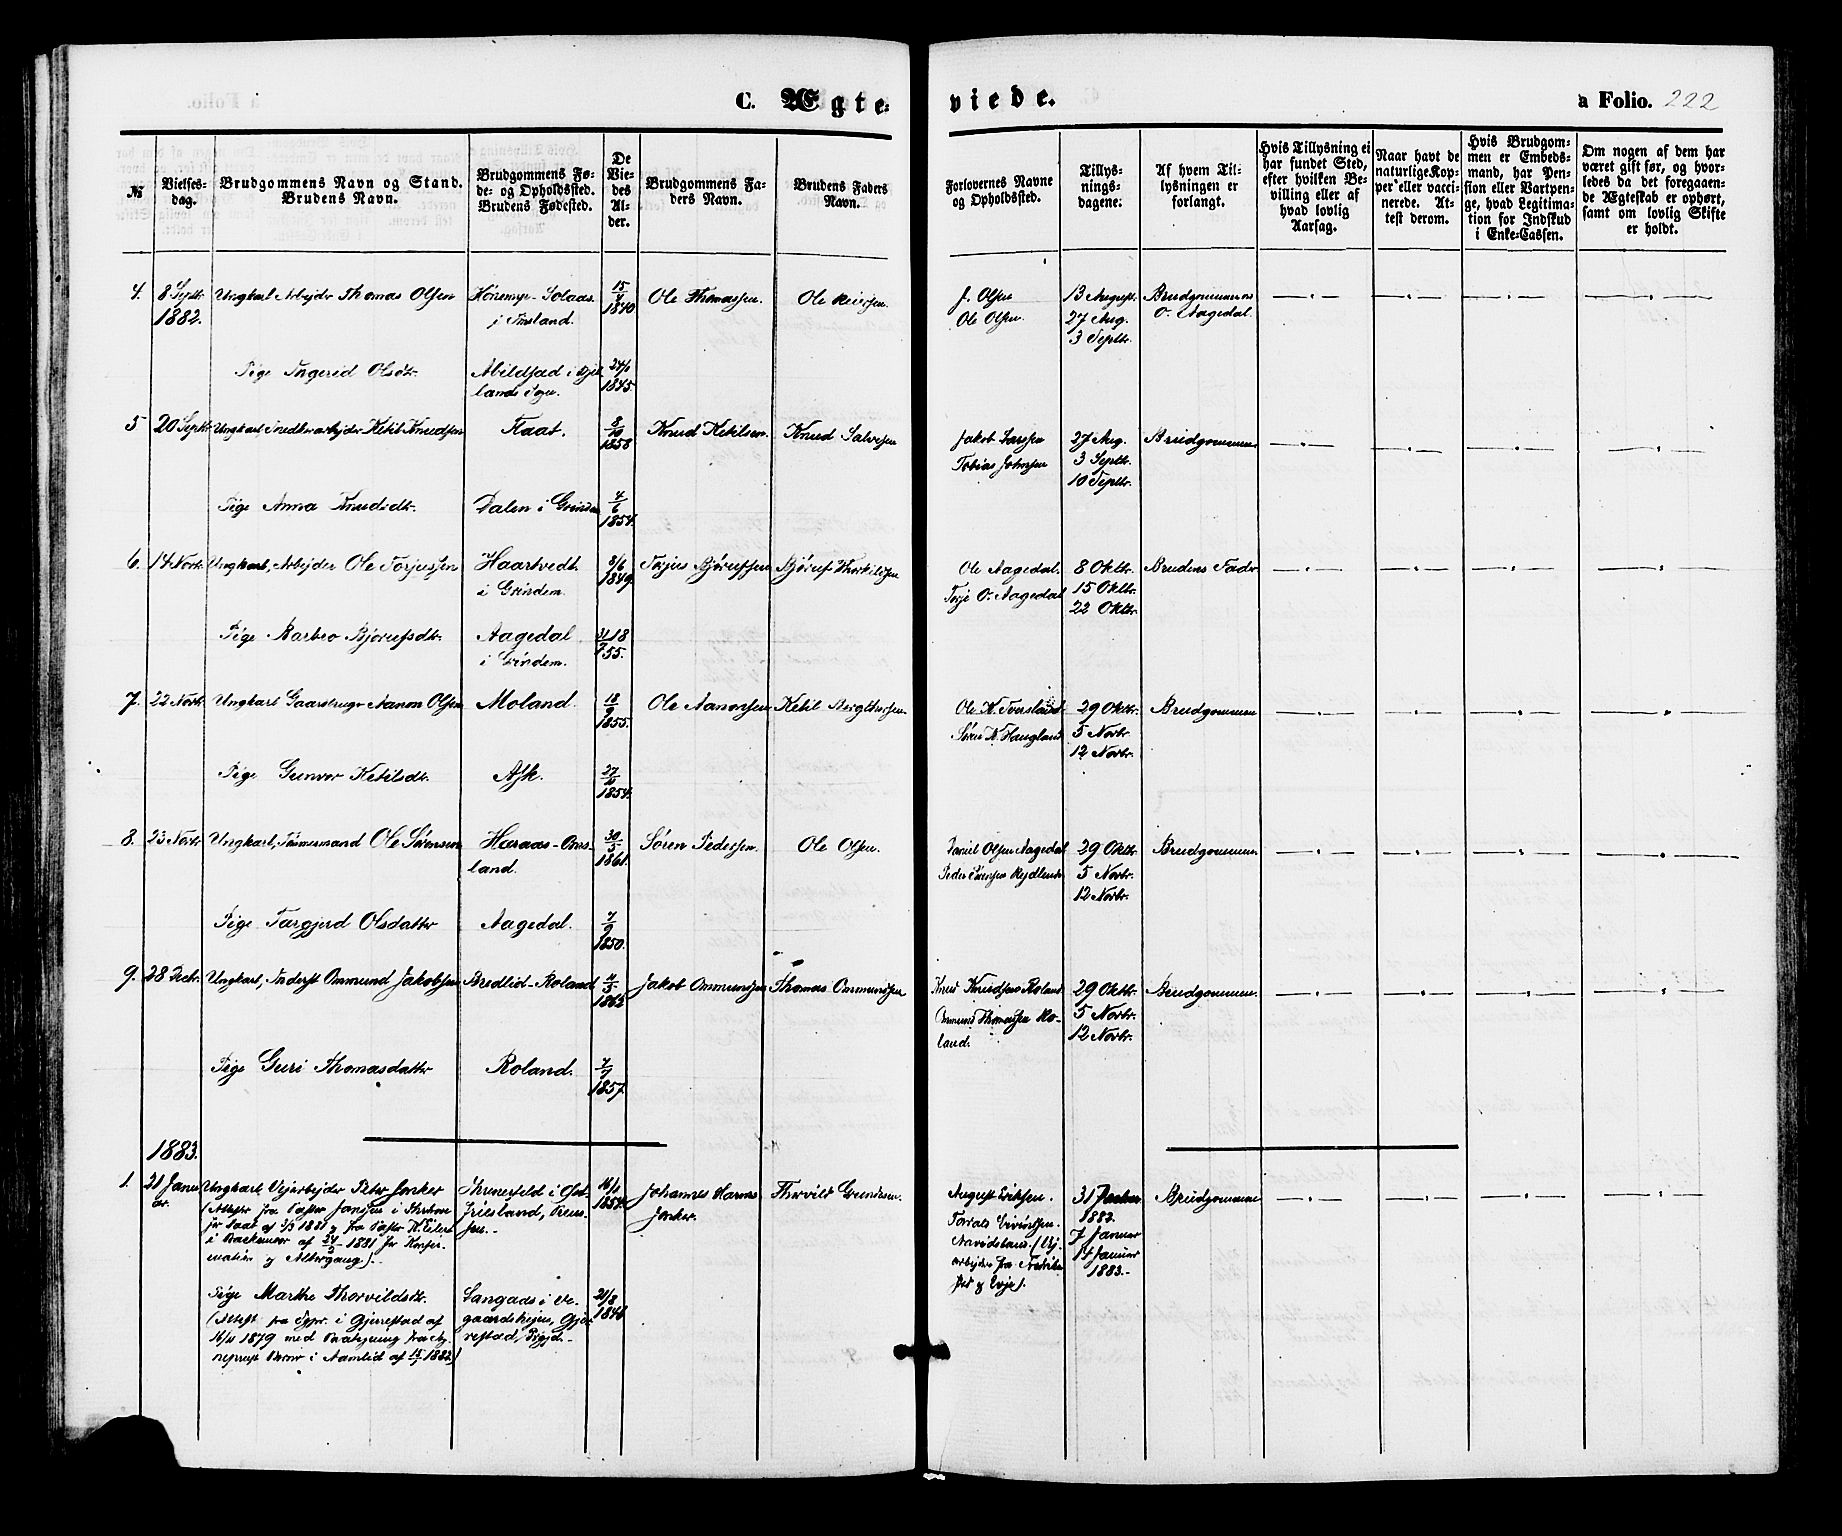 C. Ægte=
viede.
a Folio. 222
№
Vielses-
dag.
Brudgommens Navn og Stand.
Brudens Navn.
Brudgommens Fø-
de- og Opholdssted.
Brudens Fødested.
De
Vie-
des
Al-
der.
Brudgommens Fa-
ders Navn.
Brudens Faders
Navn.
Forlovernes Navne
og Opholdssted.
Tillys-
nings-
dagene.
Af hvem Til-
lysningen er
forlangt.
Hvis Tillysning ei
har fundet Sted,
efter hvilken Be-
villing eller af
hvad lovlig
Aarsag.
Naar havt de
naturlige Kop-
per eller vacci-
nerede. At-
test derom.
Hvis Brudgom-
men er Embeds-
mand, har Pen-
sion eller Vartpen-
ge, hvad Legitima-
tion for Indskud
i Enke-Cassen.
Om nogen af dem har
været gift før, og hvor-
ledes da det foregaaen-
de Ægteskab er ophørt,
samt om lovlig Skifte
er holdt.
4. 8 Septr Ungkarl Arbejdr Thomas Olsen
1882.
i
15
1840
Ole Thomassen.
Ole
J. Olsen
Ole Olsen.
13 August.
27 Aug.
3 Septr.
Brudgommen
O. Aagedal.
Pige Ingerid Olsdtr.
Abildsød i
lands Sogn.
24/1
1845
5 20 Septr Ungkarl Snedkerarbejdr Ketil Knudsen
Flaat.
8
10
1858
Knud Ketilsen.
Knud Salvesen
Jakob Larssen
Tobias Johnsen
27 Aug.
3 Septr.
10 Septr.
Brudgommen
Pige Anna Knudsdtr.
Dalen i Grindem
4
6
1854.
6. 14 Novr. Ungkarl, Arbejder Ole Torjussen
Haartvedt
i Grindem.
8/6
1849.
Torjus Bjørufsen
Bjøruf Thorkildsen
Ole Aagedal.
Torje O. Aagedal
8 Oktbr.
15 Oktbr.
22 Oktbr.
Brudens Fadr
Pige Barbro Bjørufsdtr.
Aagedal
i Grindem.
31 18
7 55.
7. 22 Novbr. Ungkarl Gaardbruger Aanon Olsen
Moland.
18
9
1855.
Ole Aanonsen
Ketil Bergthorsen.
Ole K. Tveteland
Søren N. Haugland
29 Oktbr.
5 Novbr.
12 Novbr.
Brudgommen
Pige Gunvor Ketilsdtr.
Ask.
27
1854.
8. 23 Novbr Ungkarl, Tømmermand Ole Sørensen
Haraas-
land.
30
5
1861.
Søren Pedersen.
Ole Olsen.
Daniel Olsen Aagedal
29 Oktbr.
5 Novbr.
12 Novbr.
Brudgommen.
Pige Targjerd Olsdatter
Aagedal.
7
9
1850.
9. 28 Decbr. Ungkarl, Inderst Ommund Jakobsen
Bredlid-Roland
4
5
1863
Jakob Ommundsen
Thomas Ommundsen
Knud Knudsen Roland
Ommund Thomassen Ro-
land.
29 Oktbr.
5 Novbr.
12 Novbr.
Brudgommen.
Pige Guri Thomasdatter
Roland.
7
1857.
1883.
1. 21 Janu-
ar.
Ungkarl, Vejarbejdr Peter Jonker
(Attester fra Pastor Janssen i
1881 og fra Pastor
i af 24 1881 for Konfir-
mation og Altergang).
i Ost-
friesland, Preus-
sen.
16/11
1854.
Johannes Harms
Jonker.
Thorvild Gundersen.
August Eriksen.
(Vej-
arbejdre fra
og Evje).
31 Decbr.
1882.
7 Januar
14 Januar
1883.-
Brudgommen
Pige Marthe Thorvildsdtr.
(Attest fra Sgpr. i Gjerrestad af
16/11 1879 med Paategning fra
i Aamlid af 15 1882)
i Ve-
gaardshejen, Gjer-
restad,
21/8
1846